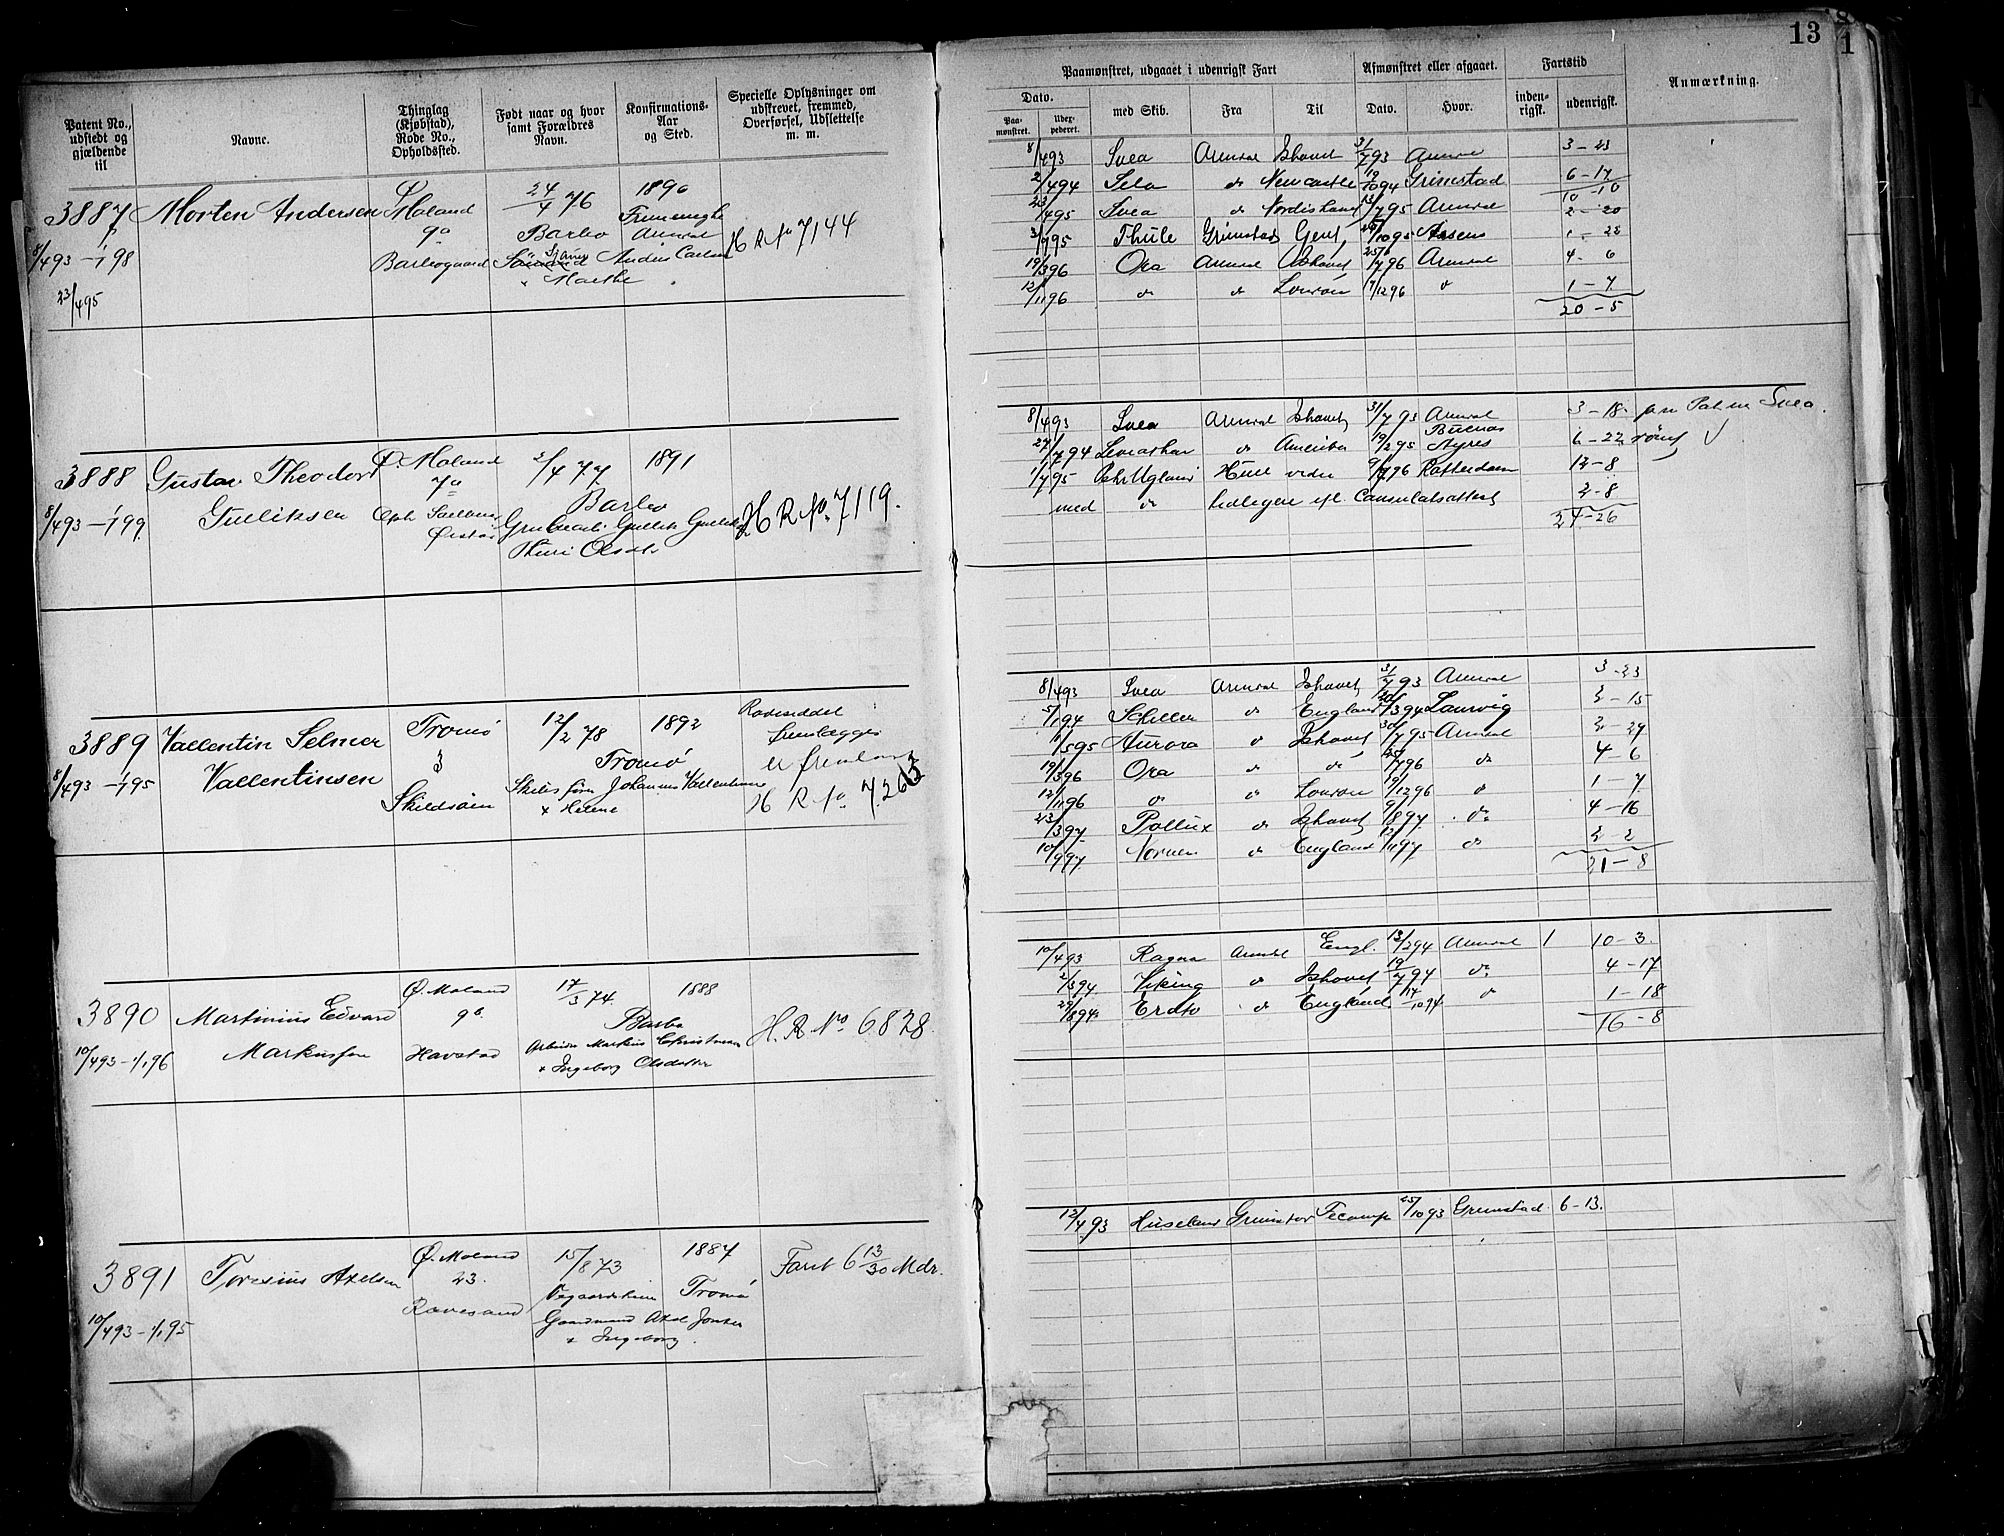 13
Patent No., udstedt og gjældende til
Navne.
Thinglag (Kjøbstad), Rode No., Opholdssted.
Født naar og hvor samt Forældres Navn.
Konfirmations-Aar og Sted.
Specielle Oplysninger om udskrevet, fremmed, Overførsel, Udslettelse m. m.
Paamønstret, udgaaet i udenrigsk Fart
Afmønstret eller afgaaet.
Fartstid
Anmærkning.
Dato.
Paa-mønstret.
Udex-pederet.
med Skib.
Fra
Til
Dato.
Hvor.
inden-rigsk.
udenrigsk.
3887 Morten Andersen Ø. Moland 24/4 76 1890
9a Barbo Arendal H R No 7144
8/4 93 – 1/1 98 Barbogaard Anders Carlsen
23/4 95 & Marthe
8/4 93 Svea Arendal Ishavet 31/7 93 Arendal 3 – 23
2/4 94 do Newcastle 19/10 94 Grimstad 6 – 17
10 – 10
23/4 95 Svea do 13/7 95 Arendal 2 – 20
3/7 95 Thule Grimstad Gent 10 95 Assens 1 – 28
19/3 96 Ora Arendal Ishavet 25/7 96 Arendal 4 – 6
12/11 96 do do London 19/12 96 do 1 – 7
20 – 5
3888 Gustav Theodor Ø. Moland 2/4 77 1891
7a Barbo H R No 7119.
8/4 93 – 1/1 99. Gulliksen Gullik
Thuri Olsdtr
8/4 93 Svea Arendal Ishavet 31/7 93 Arendal 3 – 18
27/7 94 Leviathan do Amerika 19/2 95 Buenos Ayres 6 – 22 rømt
1/7 95 Johs Ugland Hull 9/7 96 Rotterdam 12 – 8
med do efl. Consulatsattest 2 – 8
24 – 26
3889 Vallentin Selmer Tromø 12/2 78 1892
3 Tromø
8/4 93 – 1/1 95 Vallentinsen Johannes Vallentinsen
& Helene H R No 7265
8/4 93 Svea Arendal Ishavet 31/7 93 Arendal 3 – 23
5/1 94 Schiller do England 3 94 Laurvig 2 – 15
1/5 95 Aurora do Ishavet 30/7 95 Arendal 2 – 29
19/3 96 Ora do do 25/7 96 do 4 – 6
12/11 96 do do London 19/12 96 do 1 – 7
23/3 97 Pollux do Ishavet 9/8 97 do 4 – 16
10/9 97 Nornen do England 12/11 97 do 2 – 2
21 – 8
3890 Martinius Edvard Ø. Moland 17/3 74. 1888
9a Barbo H. R No 6828.
10/4 93 – 1/1 96 Markussen Havstad Arbeider Markus Christensen
& Ingeborg Olsdatter
10/4 93 Ragna Arendal Engl. 13/2 94 Arendal 1 10 – 3.
2/3 94 Viking do Ishavet 19/7 94 do 4 – 17
29/8 94 Erato do England 17/10 94 do 1 – 18
16 – 8
3891 Toresius Axelsen Ø. Moland 15/8 73 1887 Fart 6 13/30 Mdr.
23. Vegaardsheien Tromø
10/4 93 – 1/1 95 Ravesand Gaardmand Axel Jonsen
& Ingeborg.
12/4 93 Grimstad Fecamp 25/10 93 Grimstad 6 – 13.